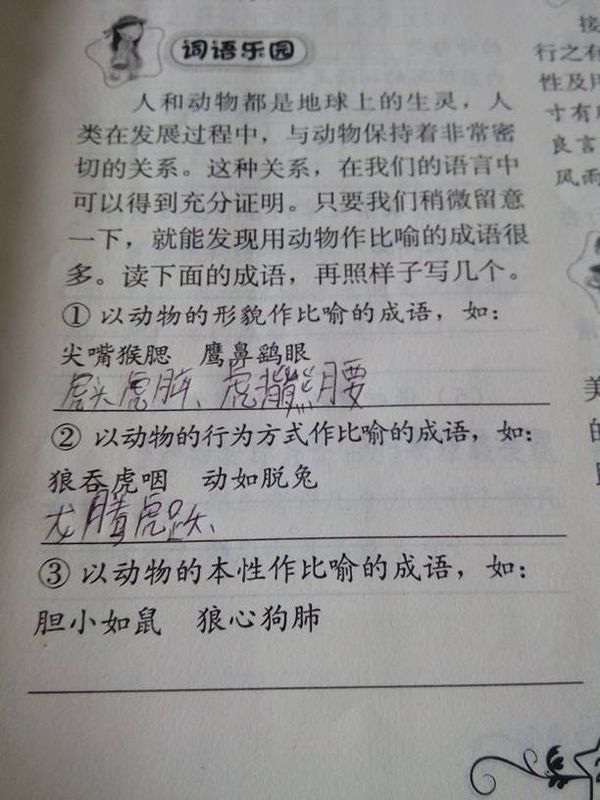 词语乐园
人和动物都是地球上的生灵，人
类在发展过程中，与动物保持着非常密
切的关系。这种关系，在我们的语言中
可以得到充分证明。只要我们稍微留意
一下，就能发现用动物作比喻的成语很
多。读下面的成语，再照样子写几个。
①以动物的形貌作比喻的成语，如：
尖嘴猴腮 鹰鼻鹞眼
虎头虎脑、虎背熊腰
②以动物的行为方式作比喻的成语，如：
狼吞虎咽 动如脱兔
龙腾虎跃、
③以动物的本性作比喻的成语，如：
胆小如鼠 狼心狗肺
接
行之有
性及
寸有
良言
风雨
美
的